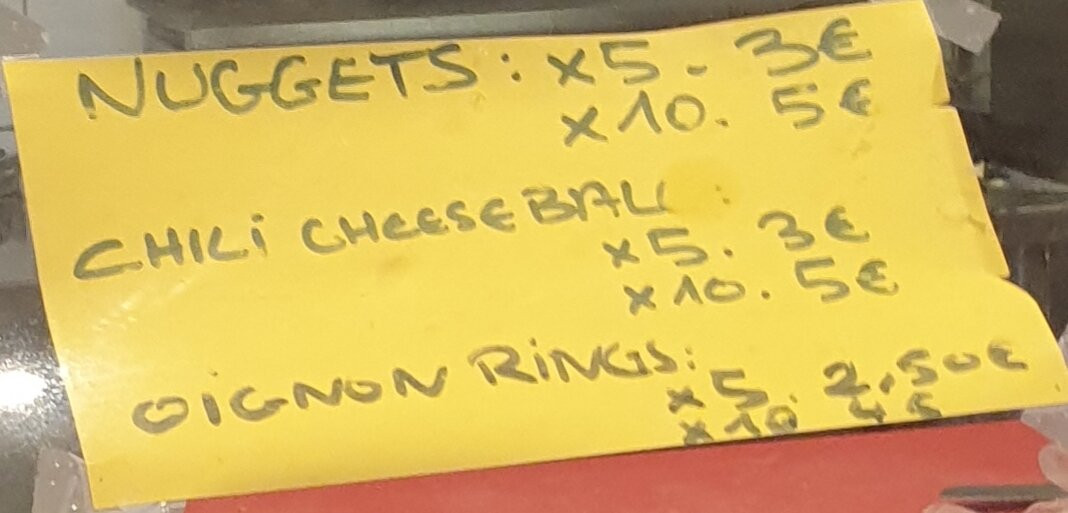 NUGGETS: x5. 3€
x10. 5€
CHILI CHEESE BALL :
x5. 3€
x10. 5€
OIGNON RINGS:
x5. 2,50€
x10 4